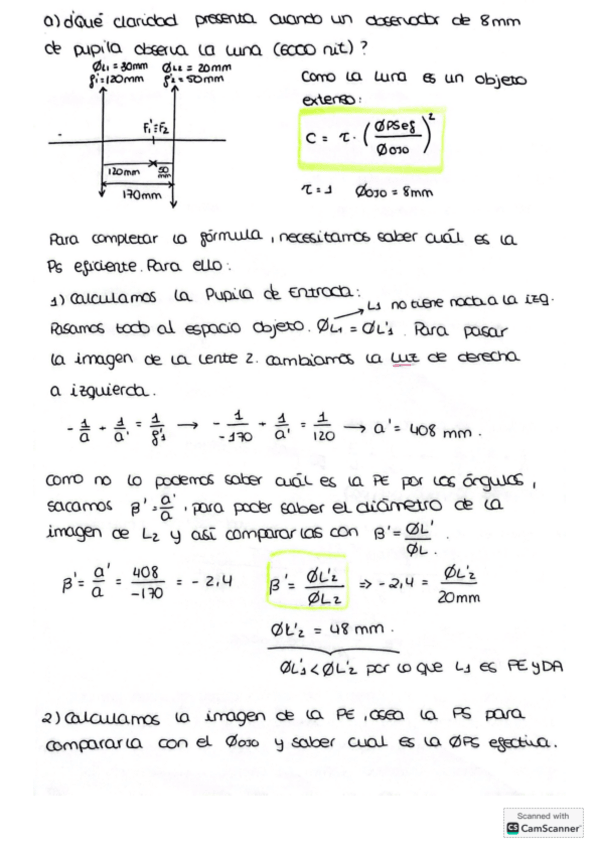 a) ¿Qué claridad presenta cuando un observador de 8mm
de pupila observa la luna (6000 nit)?
ØL1 = 30mm ØL2 = 20mm
f'1 = 120mm f'2 = 50mm
F'1 ≡ F2
120mm 50 mm
170mm
Como la luna es un objeto
extenso:
C = τ · (ØPSef / Øojo)²
τ = 1 Øojo = 8mm
Para completar la fórmula, necesitamos saber cuál es la
PS eficiente. Para ello:
1) Calculamos la Pupila de Entrada:
L1 no tiene nada a la izq.
Pasamos todo al espacio objeto. ØL1 = ØL'1. Para pasar
la imagen de la lente 2. cambiamos la luz de derecha
a izquierda.
- 1/a + 1/a' = 1/f'1 → - 1/-170 + 1/a' = 1/120 → a' = 408 mm.
Como no lo podemos saber cuál es la PE por los ángulos,
sacamos β' = a'/a, para poder saber el diámetro de la
imagen de L2 y así compararlas con β' = ØL'/ØL.
β' = a'/a = 408/-170 = -2,4 β' = ØL'2/ØL2 ⇒ -2,4 = ØL'2/20mm
ØL'2 = 48 mm.
ØL'1 < ØL'2 por lo que L1 es PE y DA
2) Calculamos la imagen de la PE, osea la PS para
compararla con el Øojo y saber cual es la ØPS efectiva.
Scanned with
CS CamScanner